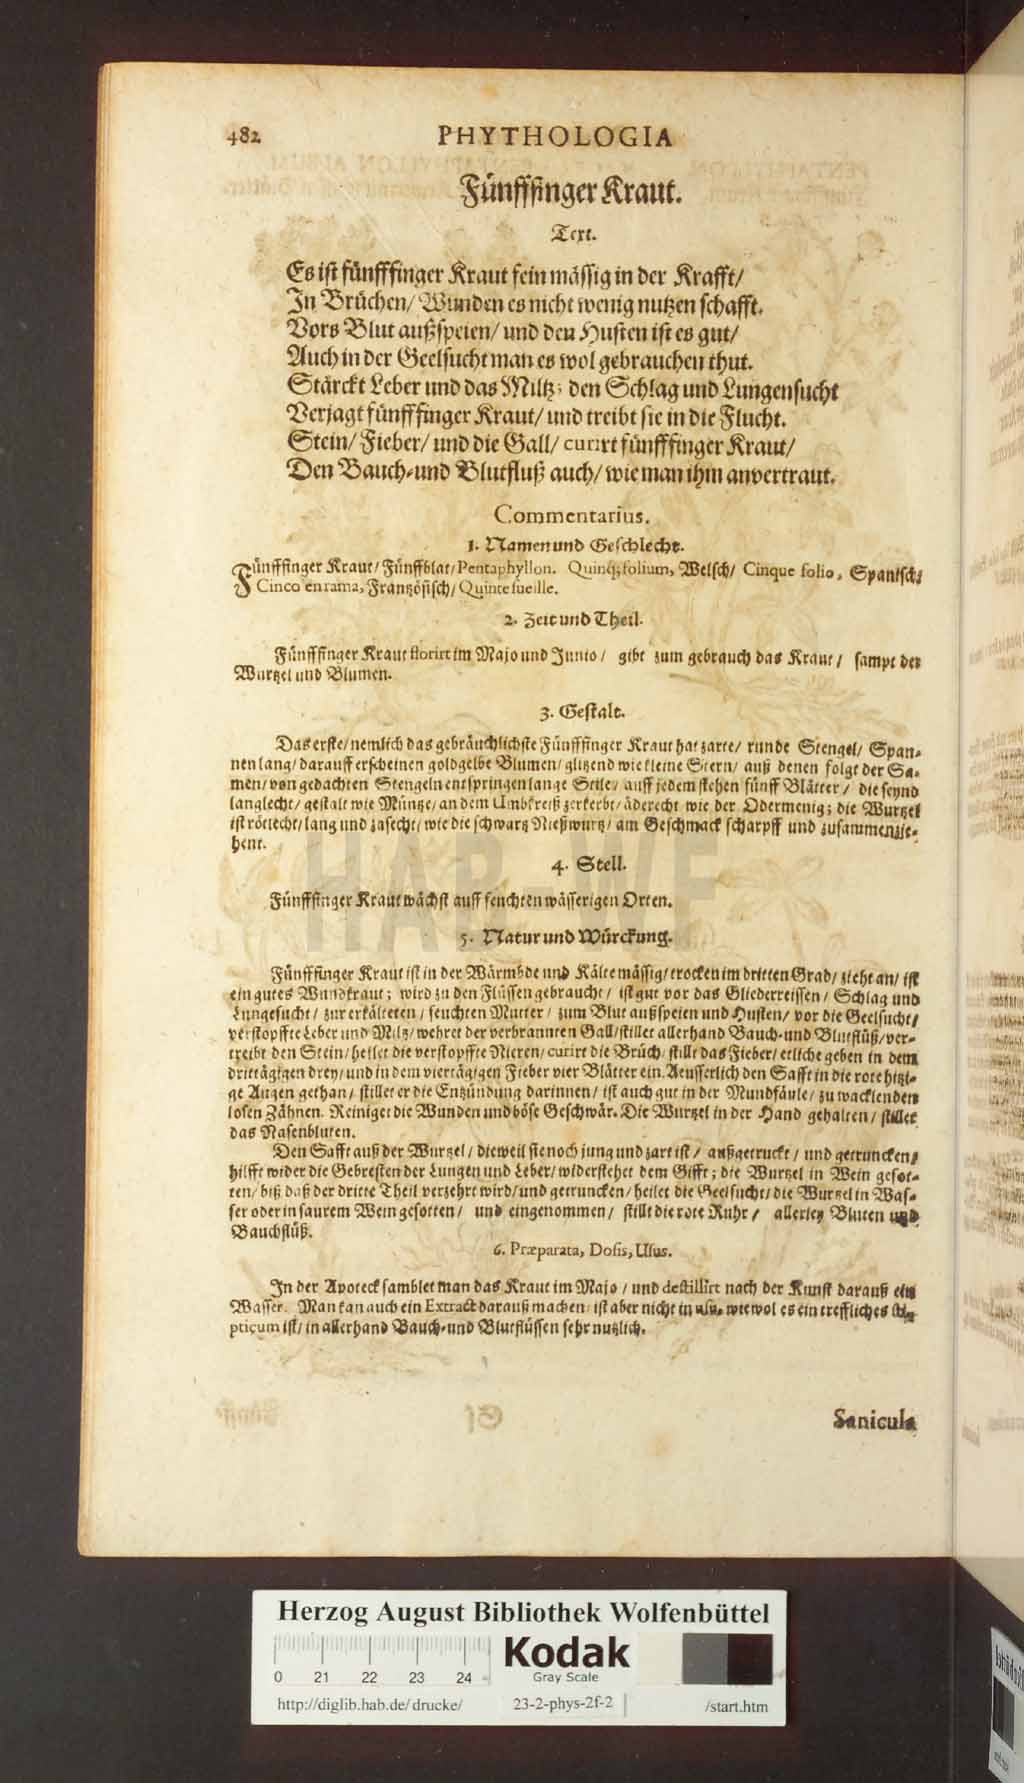 482 PHYTHOLOGIA
Fünfffinger Kraut.
Text.
Es ist fünfffinger Kraut fein mässig in der Krafft/
In Brüchen/ Wunden es nicht wenig nutzen schafft.
Vors Blut außspeien/ und den Husten ist es gut/
Auch in der Geelsucht man es wol gebrauchen thut.
Stärckt Leber und das Miltz; den Schlag und Lungensucht
Verjagt fünfffinger Kraut/ und treibt sie in die Flucht.
Stein/ Fieber/ und die Gall/ curirt fünfffinger Kraut/
Den Bauch-und Blutfluß auch/ wie man ihm anvertraut.
Commentarius.
1. Namen und Geschlecht.
Fünfffinger Kraut/ Fünffblat/ Pentaphyllon. Quinq; folium, Welsch/ Cinque folio, Spanisch/
Cinco enrama, Frantzösisch/ Quinte fueille.
2. Zeit und Theil.
Fünfffinger Kraut florirt im Majo und Junio/ gibt zum gebrauch das Kraut/ sampt der
Wurtzel und Blumen.
3. Gestalt.
Das erste/ nemlich das gebräuchlichste Fünfffinger Kraut hat zarte/ runde Stengel/ Span-
nen lang/ darauff erscheinen goldgelbe Blumen/ glitzend wie kleine Stern/ auß denen folgt der Sa-
men/ von gedachten Stengeln entspringen lange Stile/ auff jedem stehen fünff Blätter/ die seynd
langlecht/ gestalt wie Müntze/ an dem Umbkreiß zerkerbt/ äderecht wie der Odermenig; die Wurtzel
ist rötlecht/ lang und zasecht/ wie die schwartz Nießwurtz/ am Geschmack scharpff und zusammenzie-
hent.
4. Stell.
Fünfffinger Kraut wächst auff feuchten wässerigen Orten.
5. Natur und Würckung.
Fünfffinger Kraut ist in der Wärmbde und Kälte mässig/ trocken im dritten Grad/ zieht an/ ist
ein gutes Wundkraut; wird zu den Flüssen gebraucht/ ist gut vor das Gliederreissen/ Schlag und
Lungesucht/ zur erkälteten/ feuchten Mutter/ zum Blut außspeien und Husten/ vor die Geelsucht/
verstopffte Leber und Miltz/ wehret der verbrannten Gall/ stillet allerhand Bauch-und Blutflüß/ ver-
treibt den Stein/ heilet die verstopffte Nieren/ curirt die Brüch/ stillt das Fieber/ etliche geben in dem
drittägigen drey/ und in dem viertägigen Fieber vier Blätter ein. Aeusserlich den Safft in die rote hitzi-
ge Augen gethan/ stillet er die Entzündung darinnen/ ist auch gut in der Mundfäule/ zu wacklenden
losen Zähnen. Reiniget die Wunden und böse Geschwär. Die Wurtzel in der Hand gehalten/ stillet
das Nasenbluten.
Den Safft auß der Wurtzel/ dieweil sie noch jung und zart ist/ außgetruckt/ und getruncken/
hilfft wider die Gebresten der Lungen und Leber/ widerstehet dem Gifft; die Wurtzel in Wein gesot-
ten/ biß daß der dritte Theil verzehrt wird/ und getruncken/ heilet die Geelsucht/ die Wurtzel in Was-
ser oder in saurem Wein gesotten/ und eingenommen/ stillt die rote Ruhr/ allerley Bluten und
Bauchflüß.
6. Præparata, Dosis, Usus.
In der Apoteck samblet man das Kraut im Majo/ und destillirt nach der Kunst darauß ein
Wasser. Man kan auch ein Extract darauß machen/ ist aber nicht in usu, wiewol es ein treffliches sty-
pticum ist/ in allerhand Bauch-und Blutflüssen sehr nutzlich.
Sanicula
HAB-WF
Herzog August Bibliothek Wolfenbüttel
Kodak
Gray Scale
0 21 22 23 24
http://diglib.hab.de/drucke/ 23-2-phys-2f-2 /start.htm